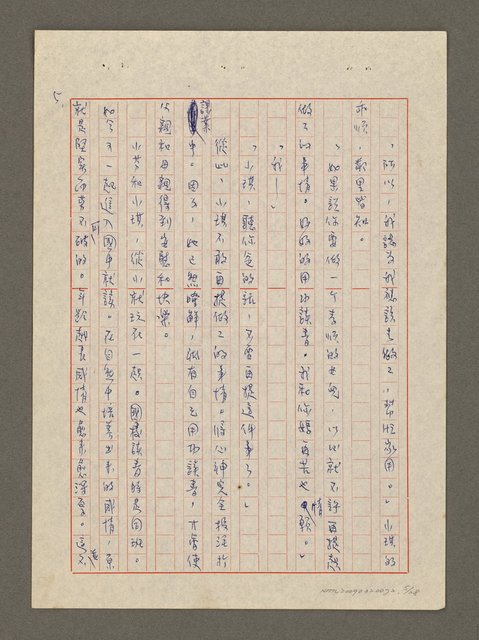 「所以，我認為我應該去做工，幫忙家用。」小琪的
乖順，鄰里皆知。
「如果說你要做一個孝順的女兒，以後就不許再提起
做工的事情。好好的用功讀書。我和你媽再苦也情願。」
「我—」
「小琪，聽你爸的話，不要再提這件事了。」
從此，小琪不敢再提做工的事情。將心神完全投注於
課業中。因為，她已然瞭解，祇有自己用功讀書，才會使
父親和母親得到安慰和快樂。
小芬和小琪，從小就玩在一起。國校讀書時是同班。
如今又一起進入國中就讀。在自然中培養出來的感情，原
就是堅實而牢不可破的。年齡越長感情也愈來愈深厚。這不
5.